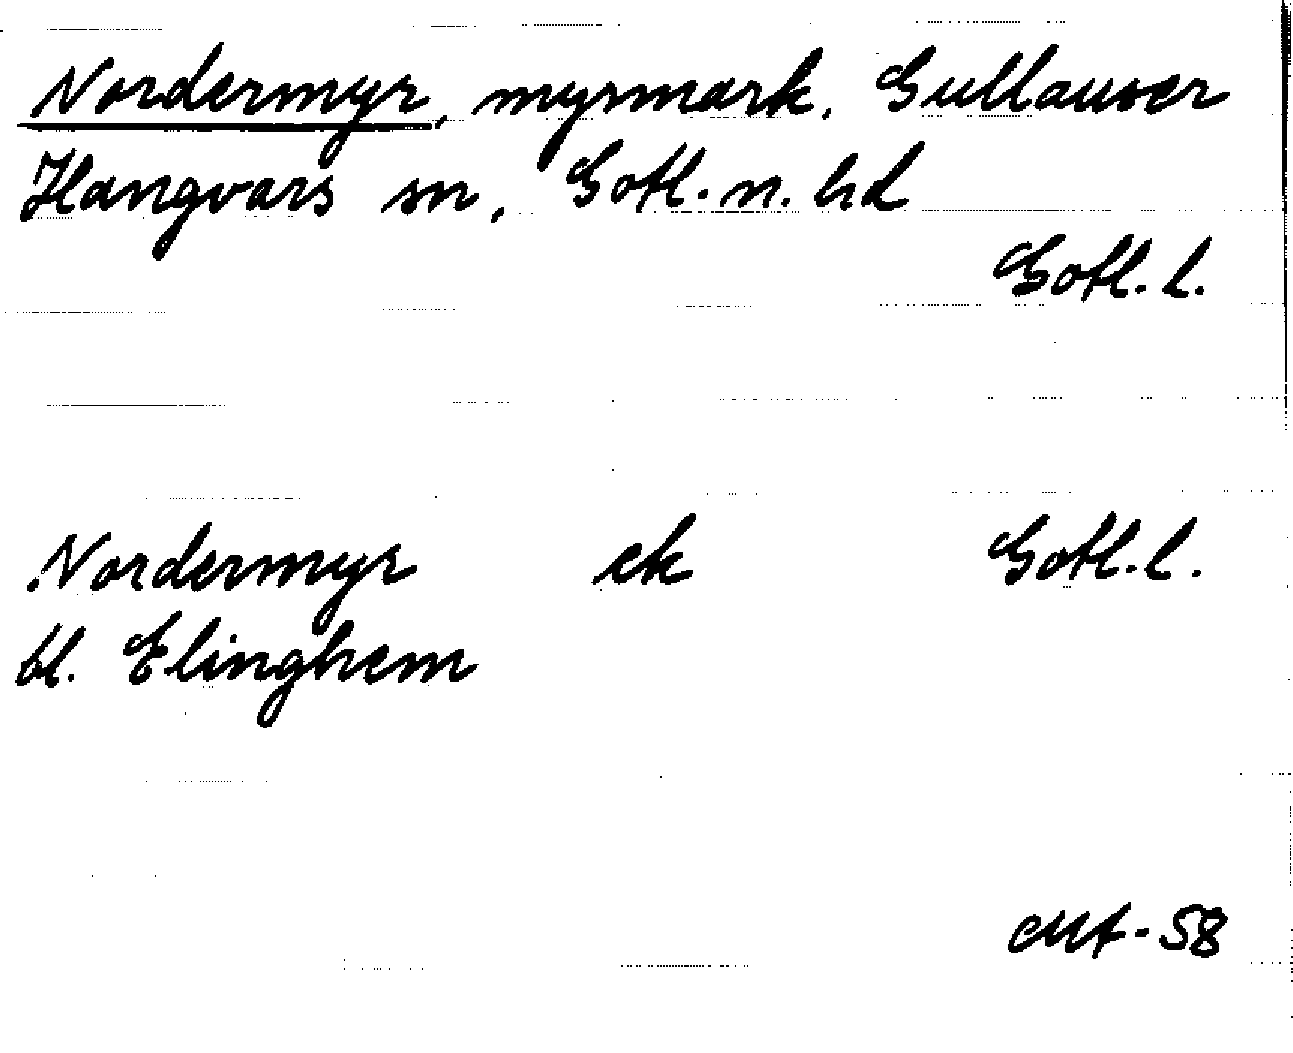 Nordermyr, myrmark, Gullauser
Hangvars sn, Gotl. n. hd
Gotl. l.
Nordermyr ek Gotl. l.
bl. Elinghem
-58